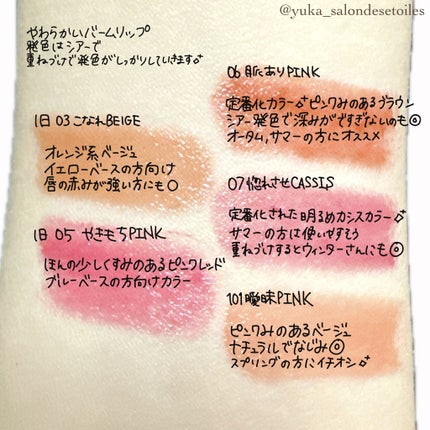 @yuka_salondesetoiles
やわらかいバームリップ
発色はシアーで
重ねづけで発色がしっかりしていきます
06 脈ありPINK
定番化カラー ピンクみのあるブラウン
シアー発色で深みがですぎないのも◎
オータム,サマーの方にオススメ
旧 03 こなれBEIGE
オレンジ系ベージュ
イエローベースの方向け
唇の赤みが強い方にも○
07 惚れさせCASSIS
定番化された明るめカシスカラー
サマーの方は使いやすそう
重ねづけするとウィンターさんにも◎
旧 05 やきもちPINK
ほんの少しくすみのあるピンクレッド
ブルーベースの方向けカラー
101 曖昧PINK
ピンクみのあるベージュ
ナチュラルでなじみ◎
スプリングの方にイチオシ